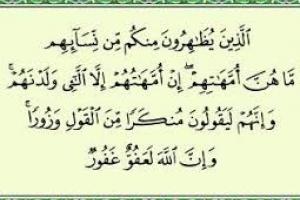 ٱلَّذِينَ يُظَٰهِرُونَ مِنكُم مِّن نِّسَآئِهِم
مَّا هُنَّ أُمَّهَٰتِهِمْ ۖ إِنْ أُمَّهَٰتُهُمْ إِلَّا ٱلَّٰٓـِٔى وَلَدْنَهُمْ ۚ
وَإِنَّهُمْ لَيَقُولُونَ مُنكَرًا مِّنَ ٱلْقَوْلِ وَزُورًا ۚ
وَإِنَّ ٱللَّهَ لَعَفُوٌّ غَفُورٌ